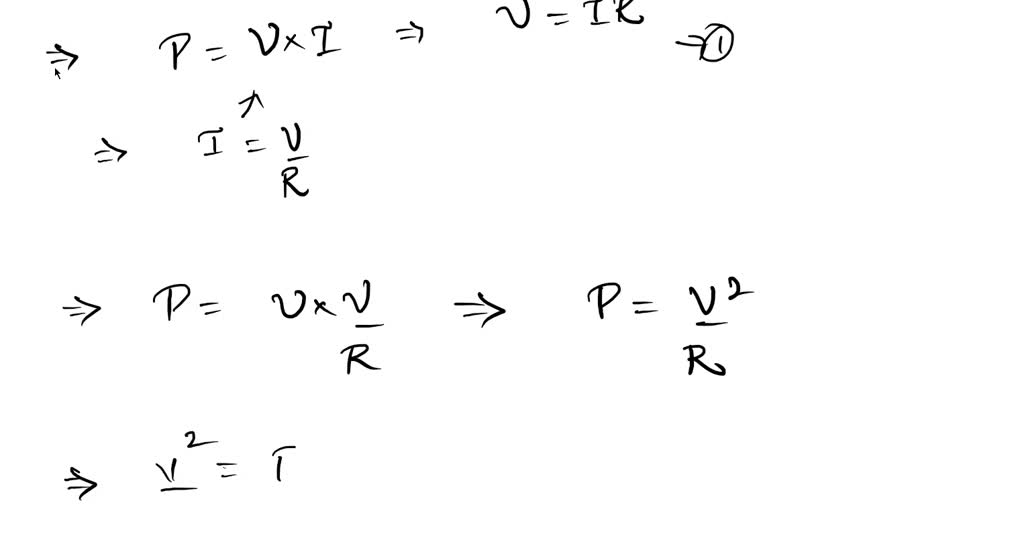 ⇒ P = V × I ⇒ V = IR → ①
⇒ I = V/R
⇒ P = V × V/R ⇒ P = V²/R
⇒ V² =